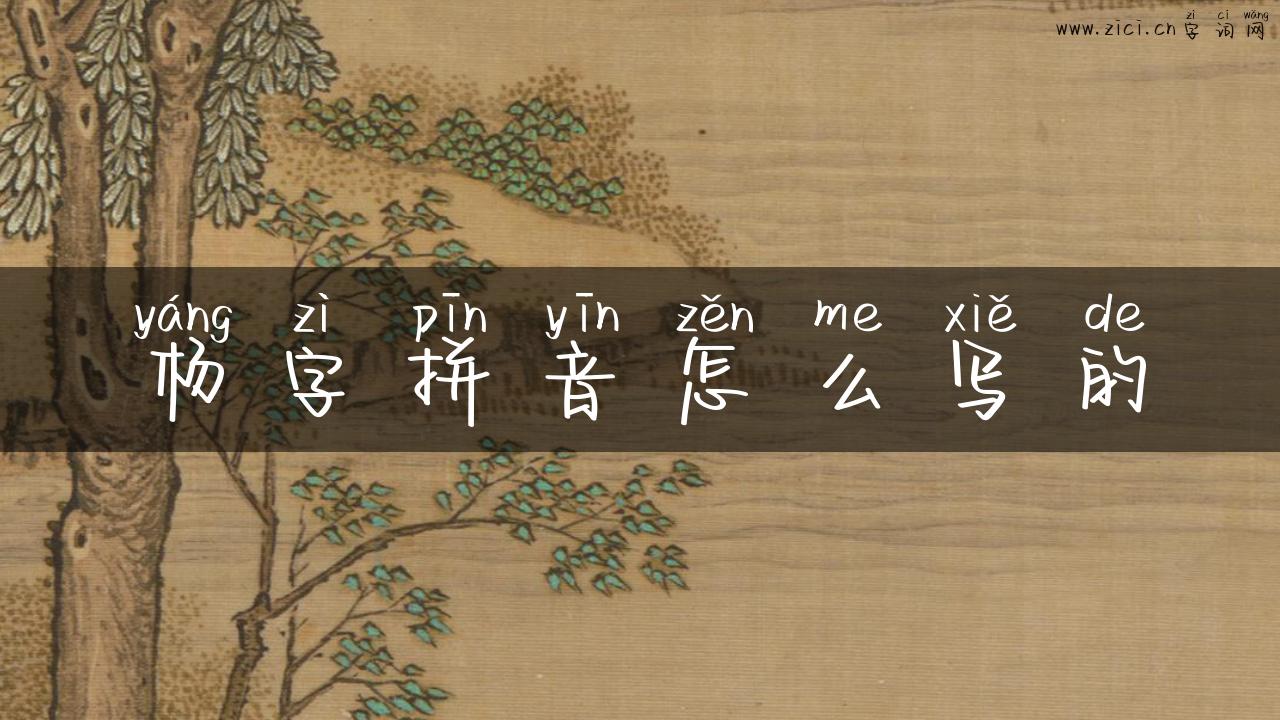 zì cí wǎng
www.zici.cn 字词网
yáng zì pīn yīn zěn me xiě de
杨字拼音怎么写的